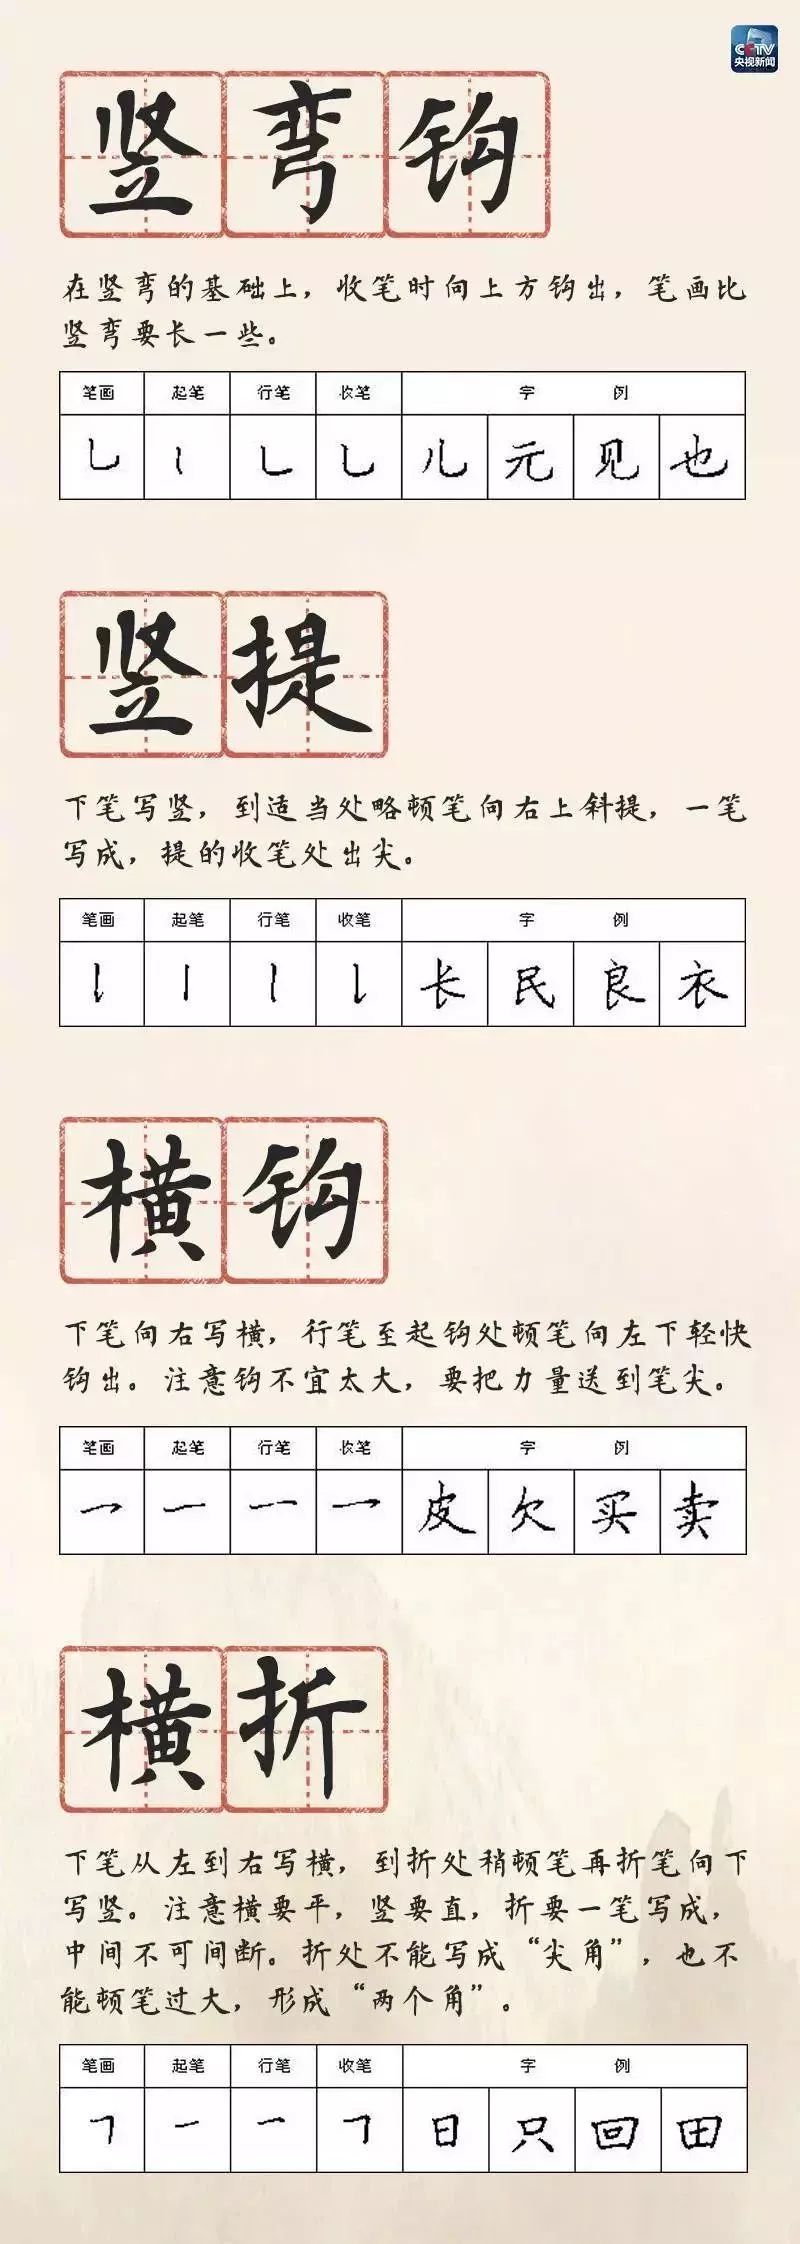 CCTV
央视新闻
竖弯钩
在竖弯的基础上，收笔时向上方钩出，笔画比
竖弯要长一些。
笔画 起笔 行笔 收笔 字 例
乚 丨 乚 乚 儿 元 见 也
竖提
下笔写竖，到适当处略顿笔向右上斜提，一笔
写成，提的收笔处出尖。
笔画 起笔 行笔 收笔 字 例
长 民 良 衣
横钩
下笔向右写横，行笔至起钩处顿笔向左下轻快
钩出。注意钩不宜太大，要把力量送到笔尖。
笔画 起笔 行笔 收笔 字 例
乛 一 一 乛 皮 欠 买 卖
横折
下笔从左到右写横，到折处稍顿笔再折笔向下
写竖。注意横要平，竖要直，折要一笔写成，
中间不可间断。折处不能写成“尖角”，也不
能顿笔过大，形成“两个角”。
笔画 起笔 行笔 收笔 字 例
𠃍 一 一 𠃍 日 只 回 田